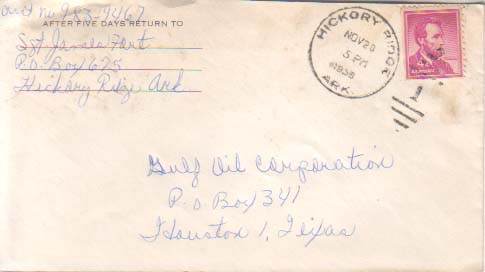 Acct No 983 9467
AFTER FIVE DAYS RETURN TO
Sgt James Fort
P.O. Box 625
Hickory Ridge Ark
HICKORY RIDGE
NOV 28
5 PM
ARK.
4¢
Gulf Oil Corporation
P.O. Box 341
Houston 1, Texas